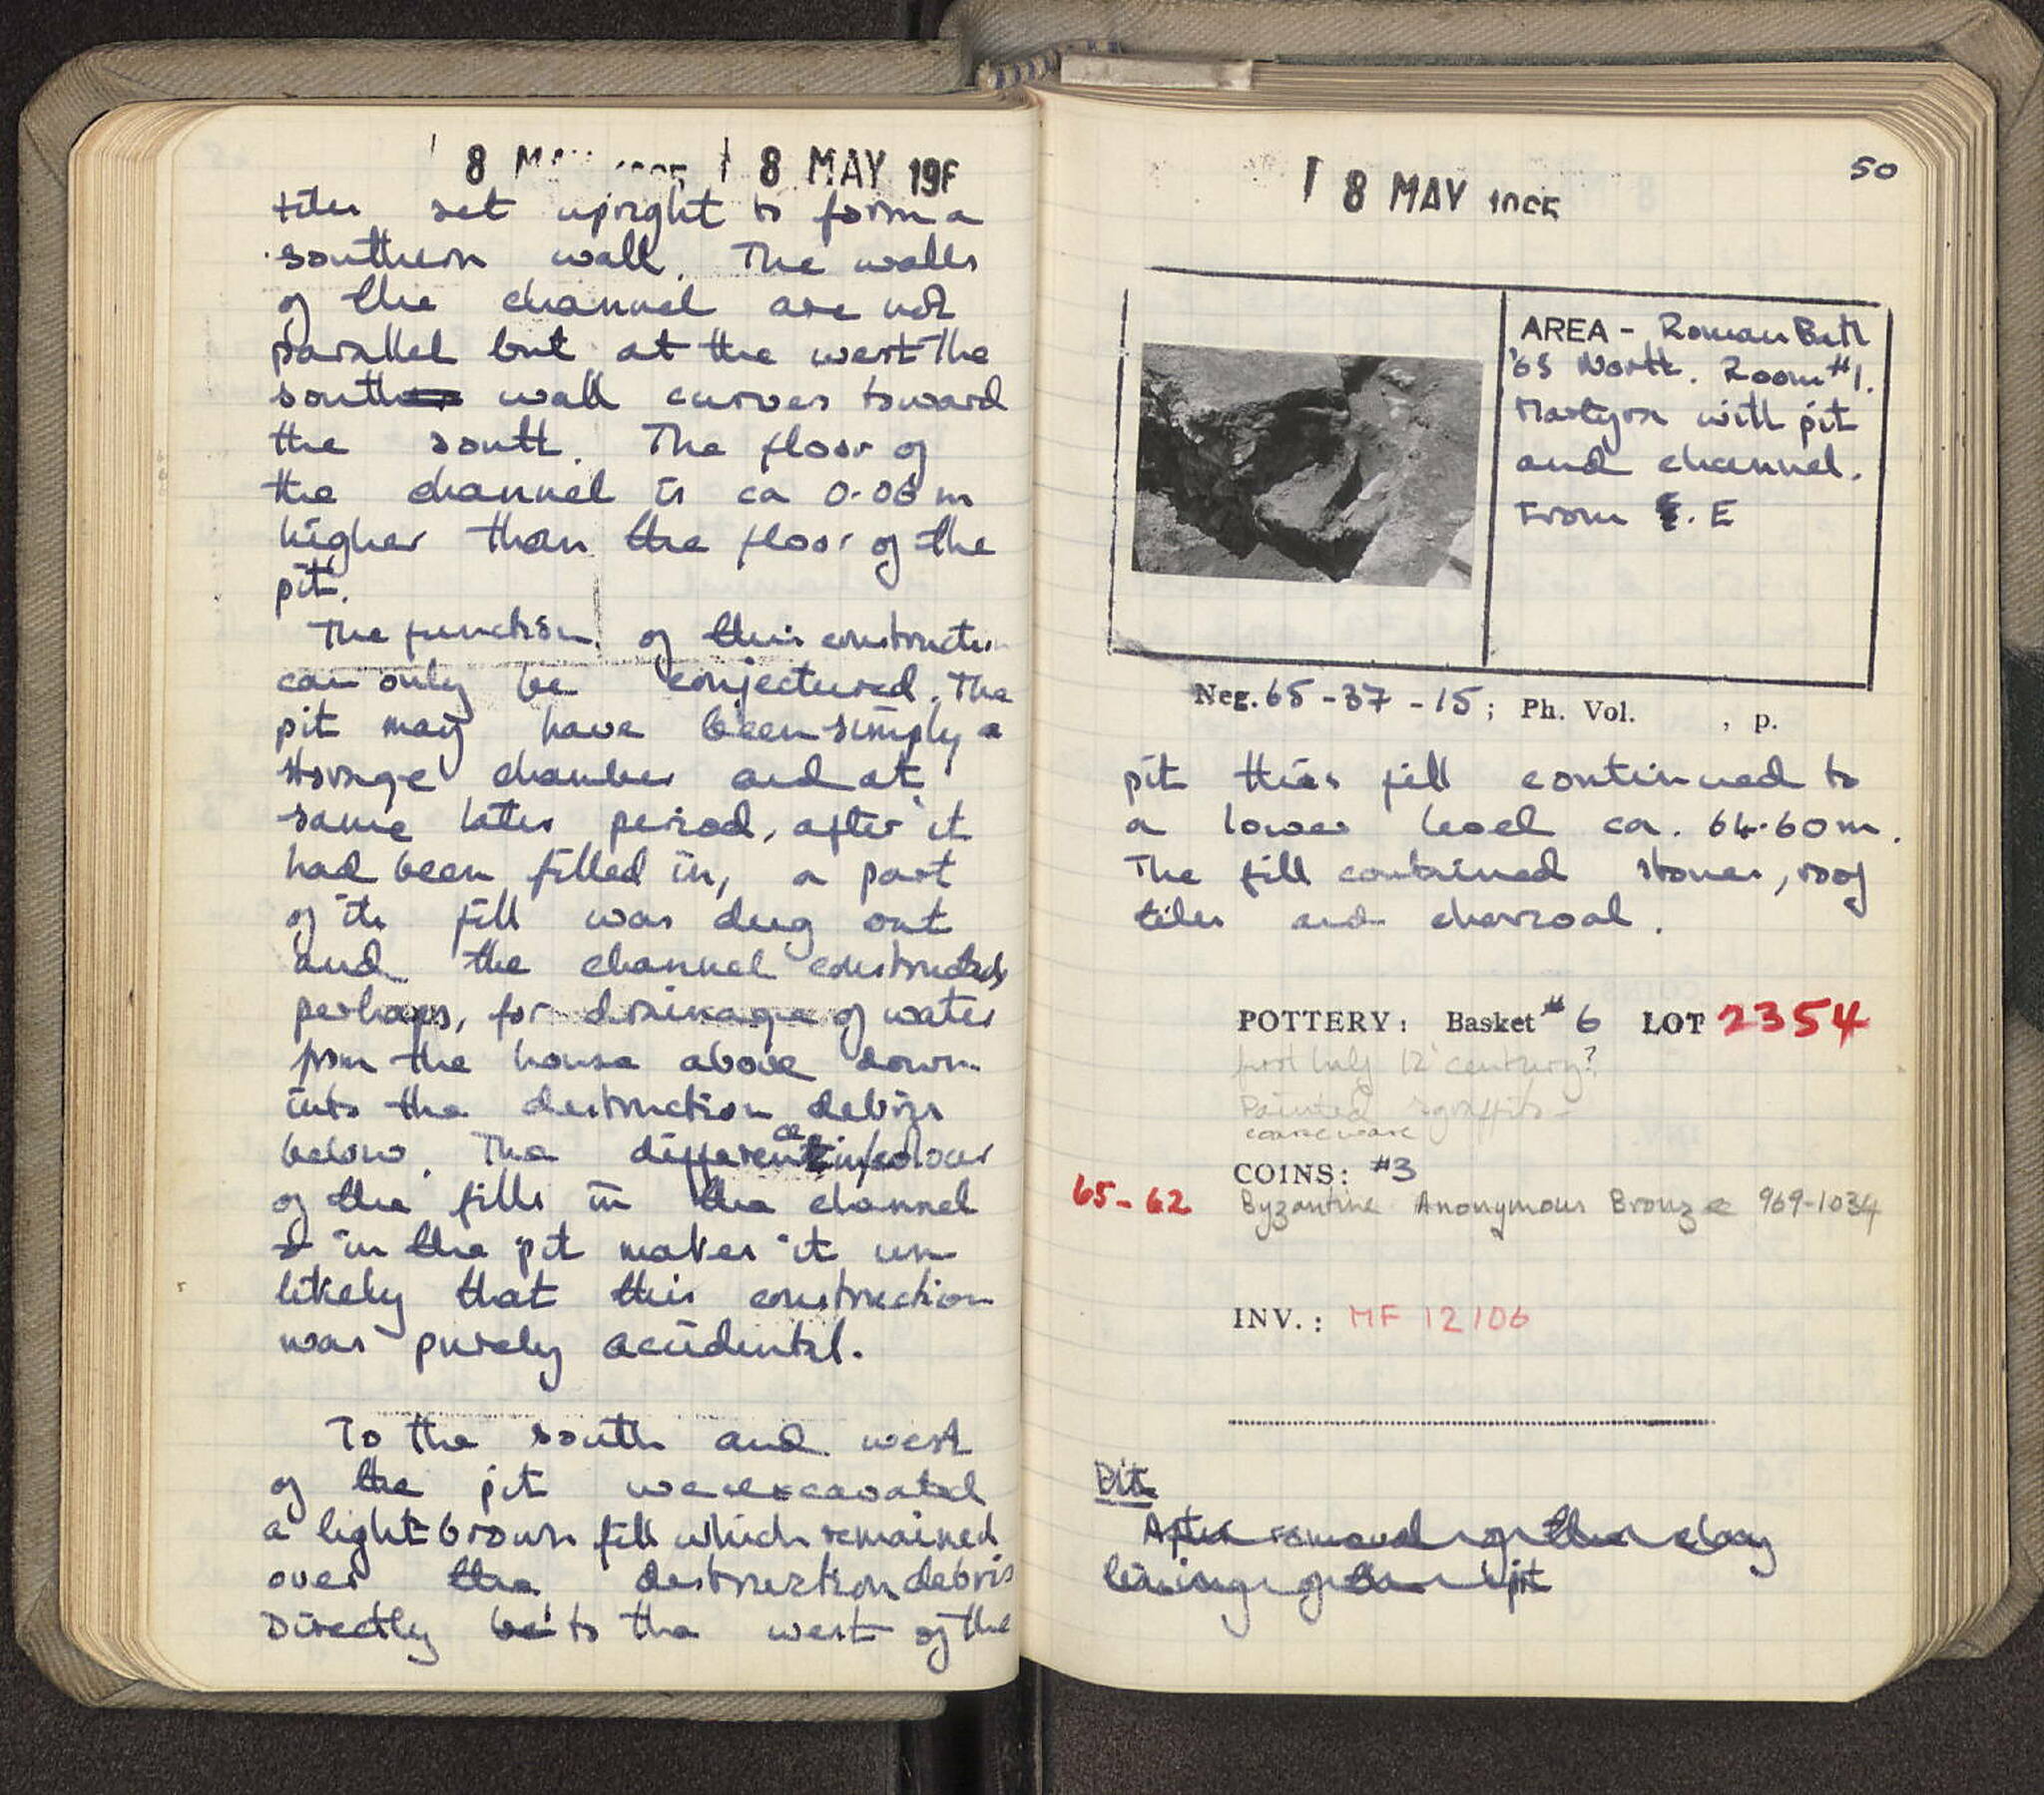 18 MAY 1965 18 MAY 196
tiles set upright to form a
southern wall. The walls
of the channel are not
parallel but at the west the
south wall curves toward
the south. The floor of
the channel is ca 0.06 m
higher than the floor of the
pit.
The function of this constructi
can only be conjectured. The
pit may have been simply a
storage chamber and at
same later period, after it
had been filled in, a part
of its fill was dug out
and the channel constructed
perhaps, for drainage of water
from the house above down
into the destruction debris
below. The difference in colour
of the fills in the channel
& in the pit makes it un
likely that this construction
was purely accidental.
To the south and west
of the pit we excavated
a light brown fill which remained
over the destruction debris
Directly to the west of the
50
18 MAY 1965
AREA - Roman Bath
'65 North. Room #1.
Martyra with pit
and channel.
From E
Neg. 65-37-15; Ph. Vol. , p.
pit this fill continued to
a lower level ca. 64.60 m.
The fill contained stones, roof
tiles and charcoal.
POTTERY: Basket #6 LOT 2354
first half 12 century?
Painted sgraffito -
coarseware
COINS: #3
65-62 Byzantine Anonymous Bronze 969-1034
INV.: MF 12106
Pit
After removal of the clay
lining of the pit